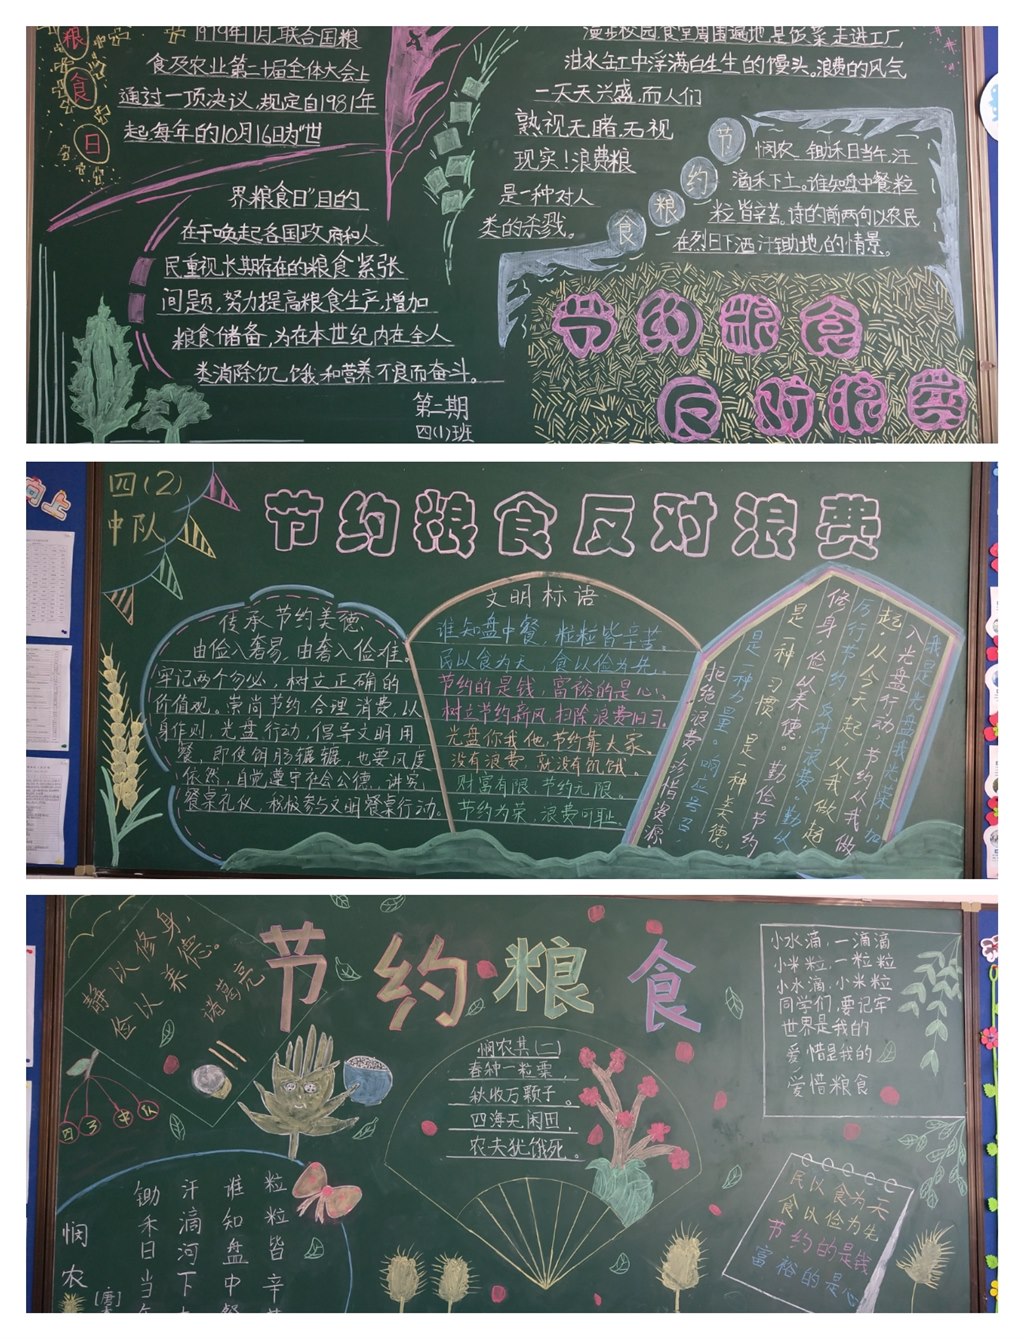 粮
食
日
1979年11月,联合国粮
食及农业第二十届全体大会上
通过一项决议,规定自1981年
起,每年的10月16日为"世
界粮食日"目的
在于唤起各国政府和人
民重视长期存在的粮食紧张
问题,努力提高粮食生产,增加
粮食储备,为在本世纪内在全人
类消除饥饿和营养不良而奋斗。
第二期
四(1)班
漫步校园食堂周围遍地是饭菜走进工厂
泔水缸中浮满白生生的馒头,浪费的风气
一天天兴盛,而人们
熟视无睹,无视
现实!浪费粮
是一种对人
类的杀戮。
节
约
粮
食
悯农 锄禾日当午,汗
滴禾下土。谁知盘中餐粒
粒皆辛苦,诗的前两句以农民
在烈日下洒汗锄地,的情景。
节约粮食
反对浪费
向上
四(2)
中队
节约粮食反对浪费
传承节约美德,
由俭入奢易,由奢入俭难。
牢记两个务必,树立正确的
价值观。崇尚节约,合理消费,以
身作则,光盘行动,倡导文明用
餐,即使饥肠辘辘,也要风度
依然,自觉遵守社会公德,讲究
餐桌礼仪,积极参与文明餐桌行动。
文明标语
谁知盘中餐,粒粒皆辛苦。
民以食为天,食以俭为先。
节约的是钱,富裕的是心,
树立节约新风,扫除浪费旧习。
光盘你我他,节约靠大家、
没有浪费,就没有饥饿。
财富有限,节约无限。
节约为荣,浪费可耻。
我是光盘我光荣,加
入光盘行动,节约从我做
起,从今天起,从我做起,
厉行节约,反对浪费。勤以
修身,俭以养德。勤俭节约
是一种习惯,是一种美德,
是一种力量。响应号召,
拒绝浪费,珍惜资源
静以修身,
俭以养德。
诸葛亮
节约粮食
四3中队
悯农其(二)
春种一粒粟,
秋收万颗子。
四海无闲田,
农夫犹饿死。
小水滴,一滴滴
小米粒,一粒粒
小水滴,小米粒
同学们,要记牢
世界是我的
爱惜是我的
爱惜粮食
悯农
[唐]
锄禾日当午
汗滴河下
谁知盘中餐
粒粒皆辛苦
民以食为天
食以俭为先
节约的是钱
富裕的是心